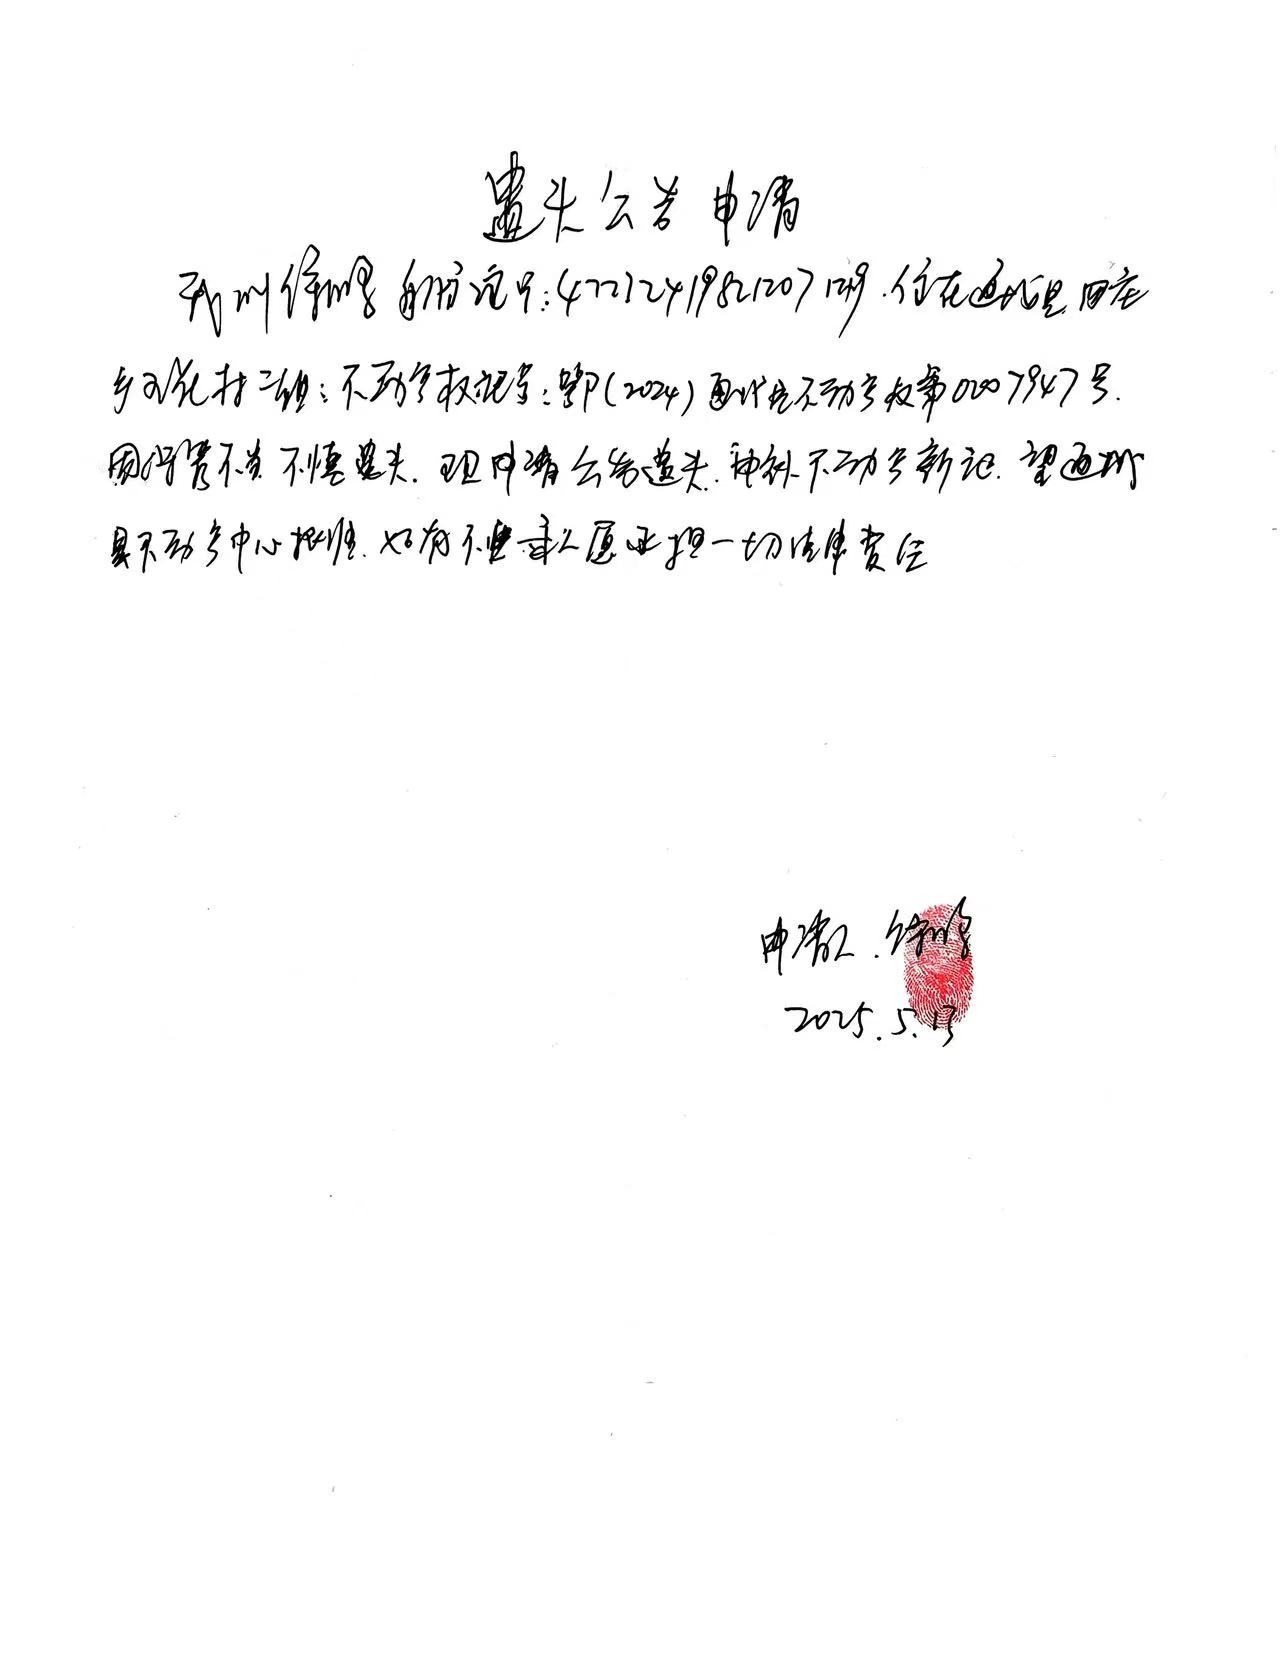 遗失公告申请
我叫徐 身份证号:42232419821207 住在通城县四庄
乡 村二组:不动产权证号:鄂(2024)通城县不动产权第0007947号.
因保管不当不慎遗失.现申请公告遗失.补不动产新证.望通城
县不动产中心批准.如有不实本人愿承担一切法律责任
申请人.徐
2025.5.13